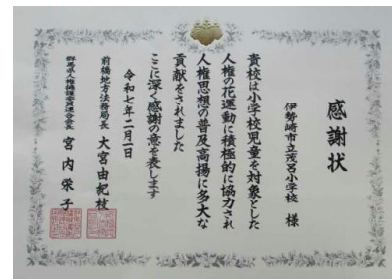 感謝状
伊勢崎市立茂呂小学校 様
貴校は小学校児童を対象とした
人権の花運動に積極的に協力され
人権思想の普及高揚に多大な
貢献をされました
ここに深く感謝の意を表します
令和七年二月一日
前橋地方法務局長 大宮由紀枝
群馬県人権擁護委員連合会長 宮内栄子